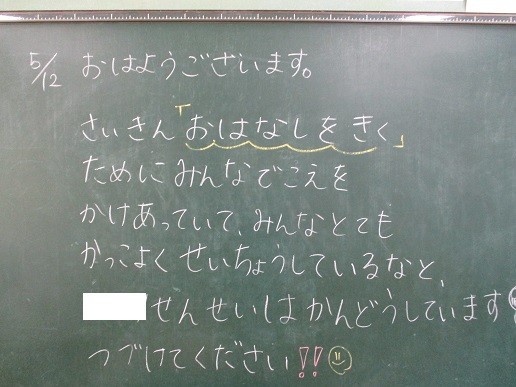 5/12 おはようございます。
さいきん「おはなしをきく」
ためにみんなでこえを
かけあっていて、みんなとても
かっこよくせいちょうしているなと、
せんせいはかんどうしています
つづけてください!!